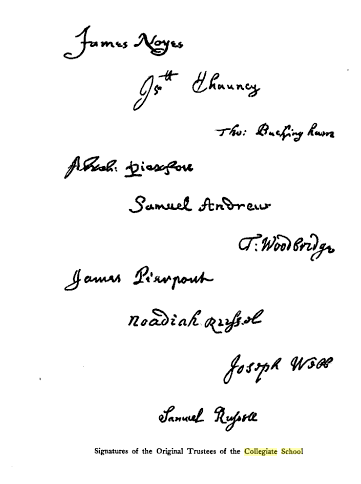 James Noyes
Jsth Chauncy
Tho: Buckingham
Abrah: Pierson
Samuel Andrew
T: Woodbridge
James Pierpont
Noadiah Russel
Joseph Webb
Samuel Russell
Signatures of the Original Trustees of the Collegiate School